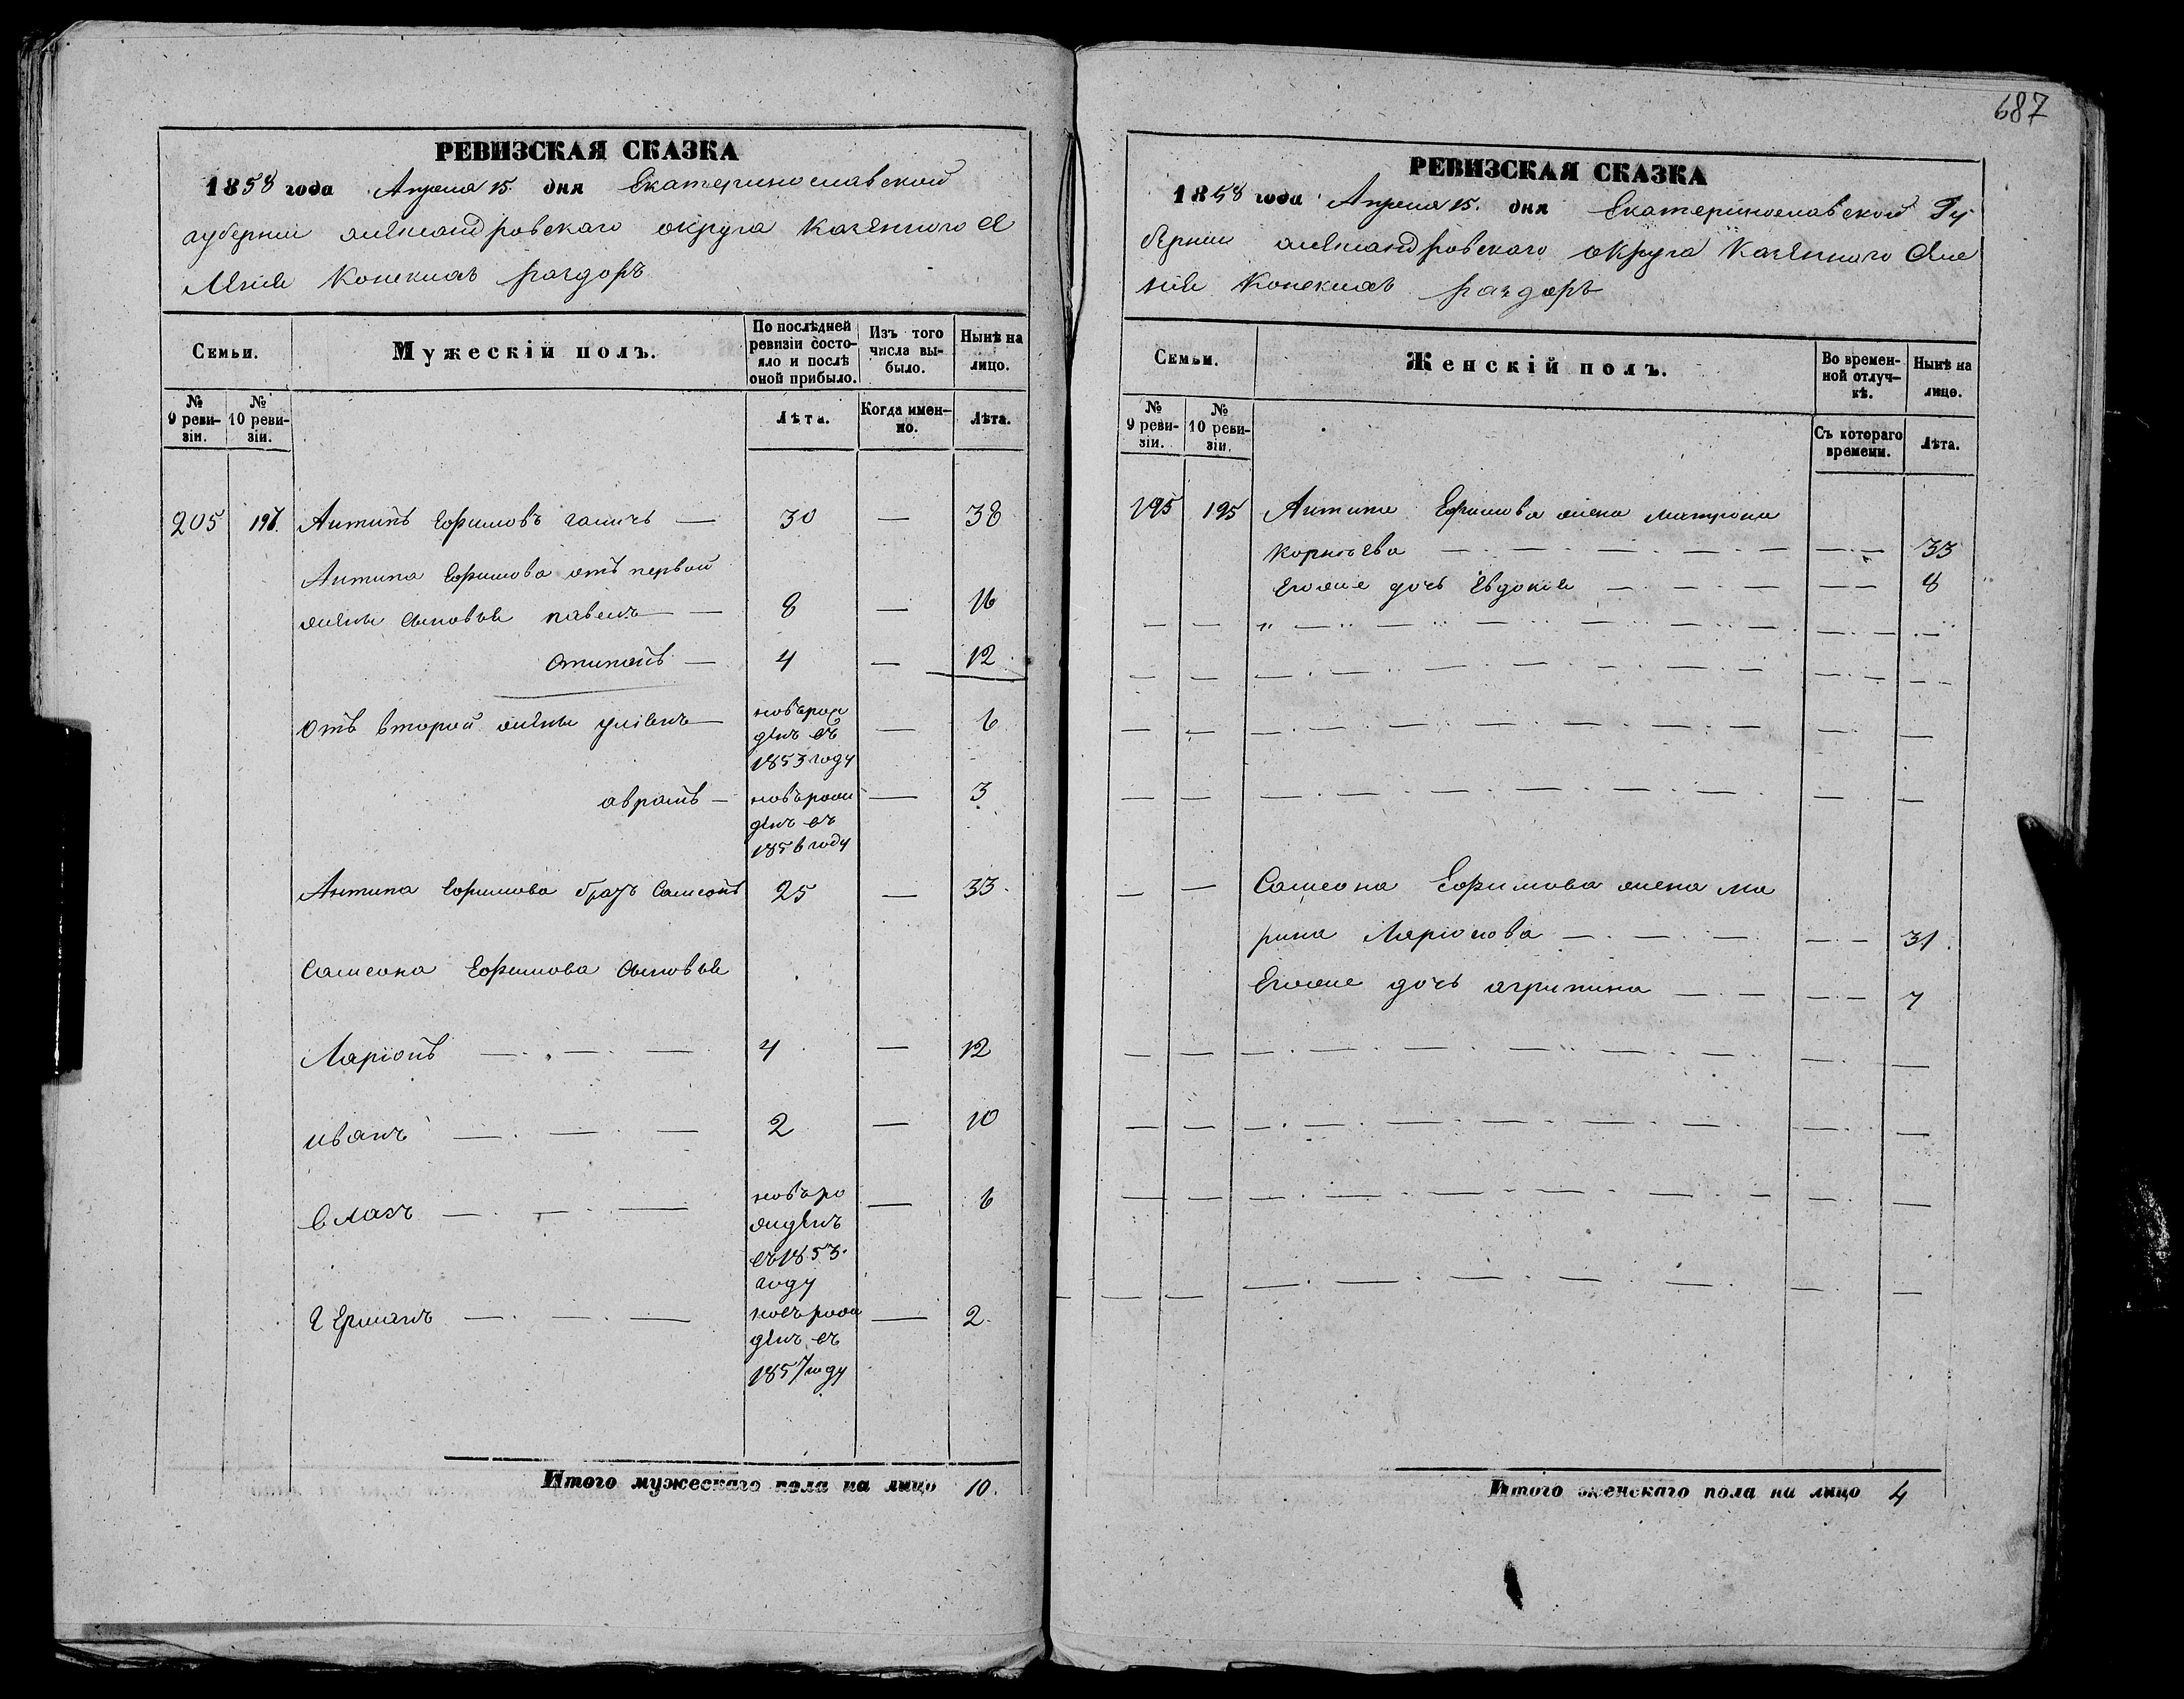 687
РЕВИЗСКАЯ СКАЗКА
1858 года Апреля 15 дня Екатеринославской
губернии александровского округа казенного се
ления Конскихъ раздоръ
Семьи.
Мужескій полъ.
По послѣдней ревизіи состояло и послѣ оной прибыло.
Изъ того числа выбыло.
Нынѣ на лицо.
№ 9 ревизіи.
№ 10 ревизіи.
Лѣта.
Когда именно.
Лѣта.
205 Антипъ Ефимовъ — 30 — 38
Антипа Ефимова отъ первой
жены сыновья павелъ — 8 — 16
— 4 — 12
Отъ второй жены — новърож — 6
денъ въ
1853 году
аврамъ — новърож — 3
денъ въ
1856 году
Антипа Ефимова братъ Самсонъ 25 — 33
Самсона Ефимова сыновья
Ларіонъ — 4 — 12
иванъ — 2 — 10
власъ — новъро — 6
жденъ
въ 1853
году
Германъ — новърож — 2
денъ въ
1857 году
Итого мужескаго пола на лицо 10.
РЕВИЗСКАЯ СКАЗКА
1858 года Апреля 15. дня Екатеринославской Гу
бернии александровского округа казенного селе
ния Конскихъ раздоръ
Семьи.
Женскій полъ.
Во временной отлучкѣ.
Нынѣ на лице.
№ 9 ревизіи.
№ 10 ревизіи.
Съ котораго времени.
Лѣта.
195 195 Антипа Ефимова жена матрона
Корнѣева — — 33
Егоже дочь Евдокия — — 8
Самсона Ефимова жена ма
рина Ларионова — — 31.
Егоже дочь агрипина — — 7
Итого женскаго пола на лицо 4